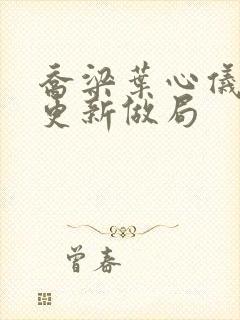 乔梁葉心儀
更新做局
曾春